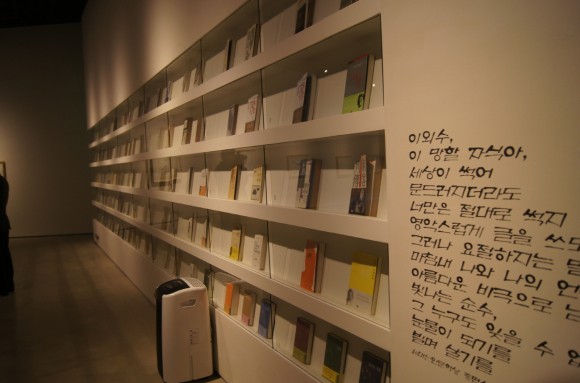 이외수,
이 망할 자식아,
세상이 썩어
문드러지더라도
너만은 절대로 썩지
영악스럽게 글을 쓰
그러나 요절하지는
마침내 나와 나의 언
아름다운 비극으로
빛나는 순수,
그 누구도 잊을 수
눈물이 되기를
빌며 살기를